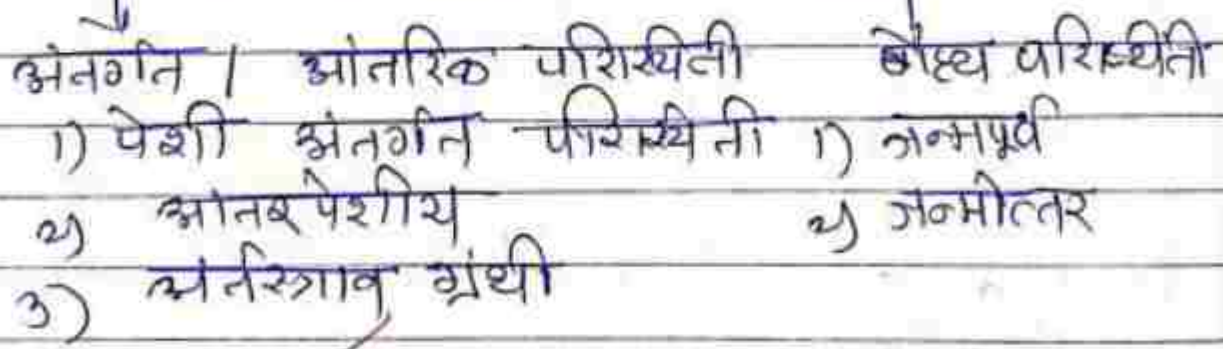 अंतर्गत / आंतरिक परिस्थिती बाह्य परिस्थिती
1) पेशी अंतर्गत परिस्थिती 1) जन्मपूर्व
2) आंतरपेशीय 2) जन्मोत्तर
3) अंर्तस्त्राव ग्रंथी